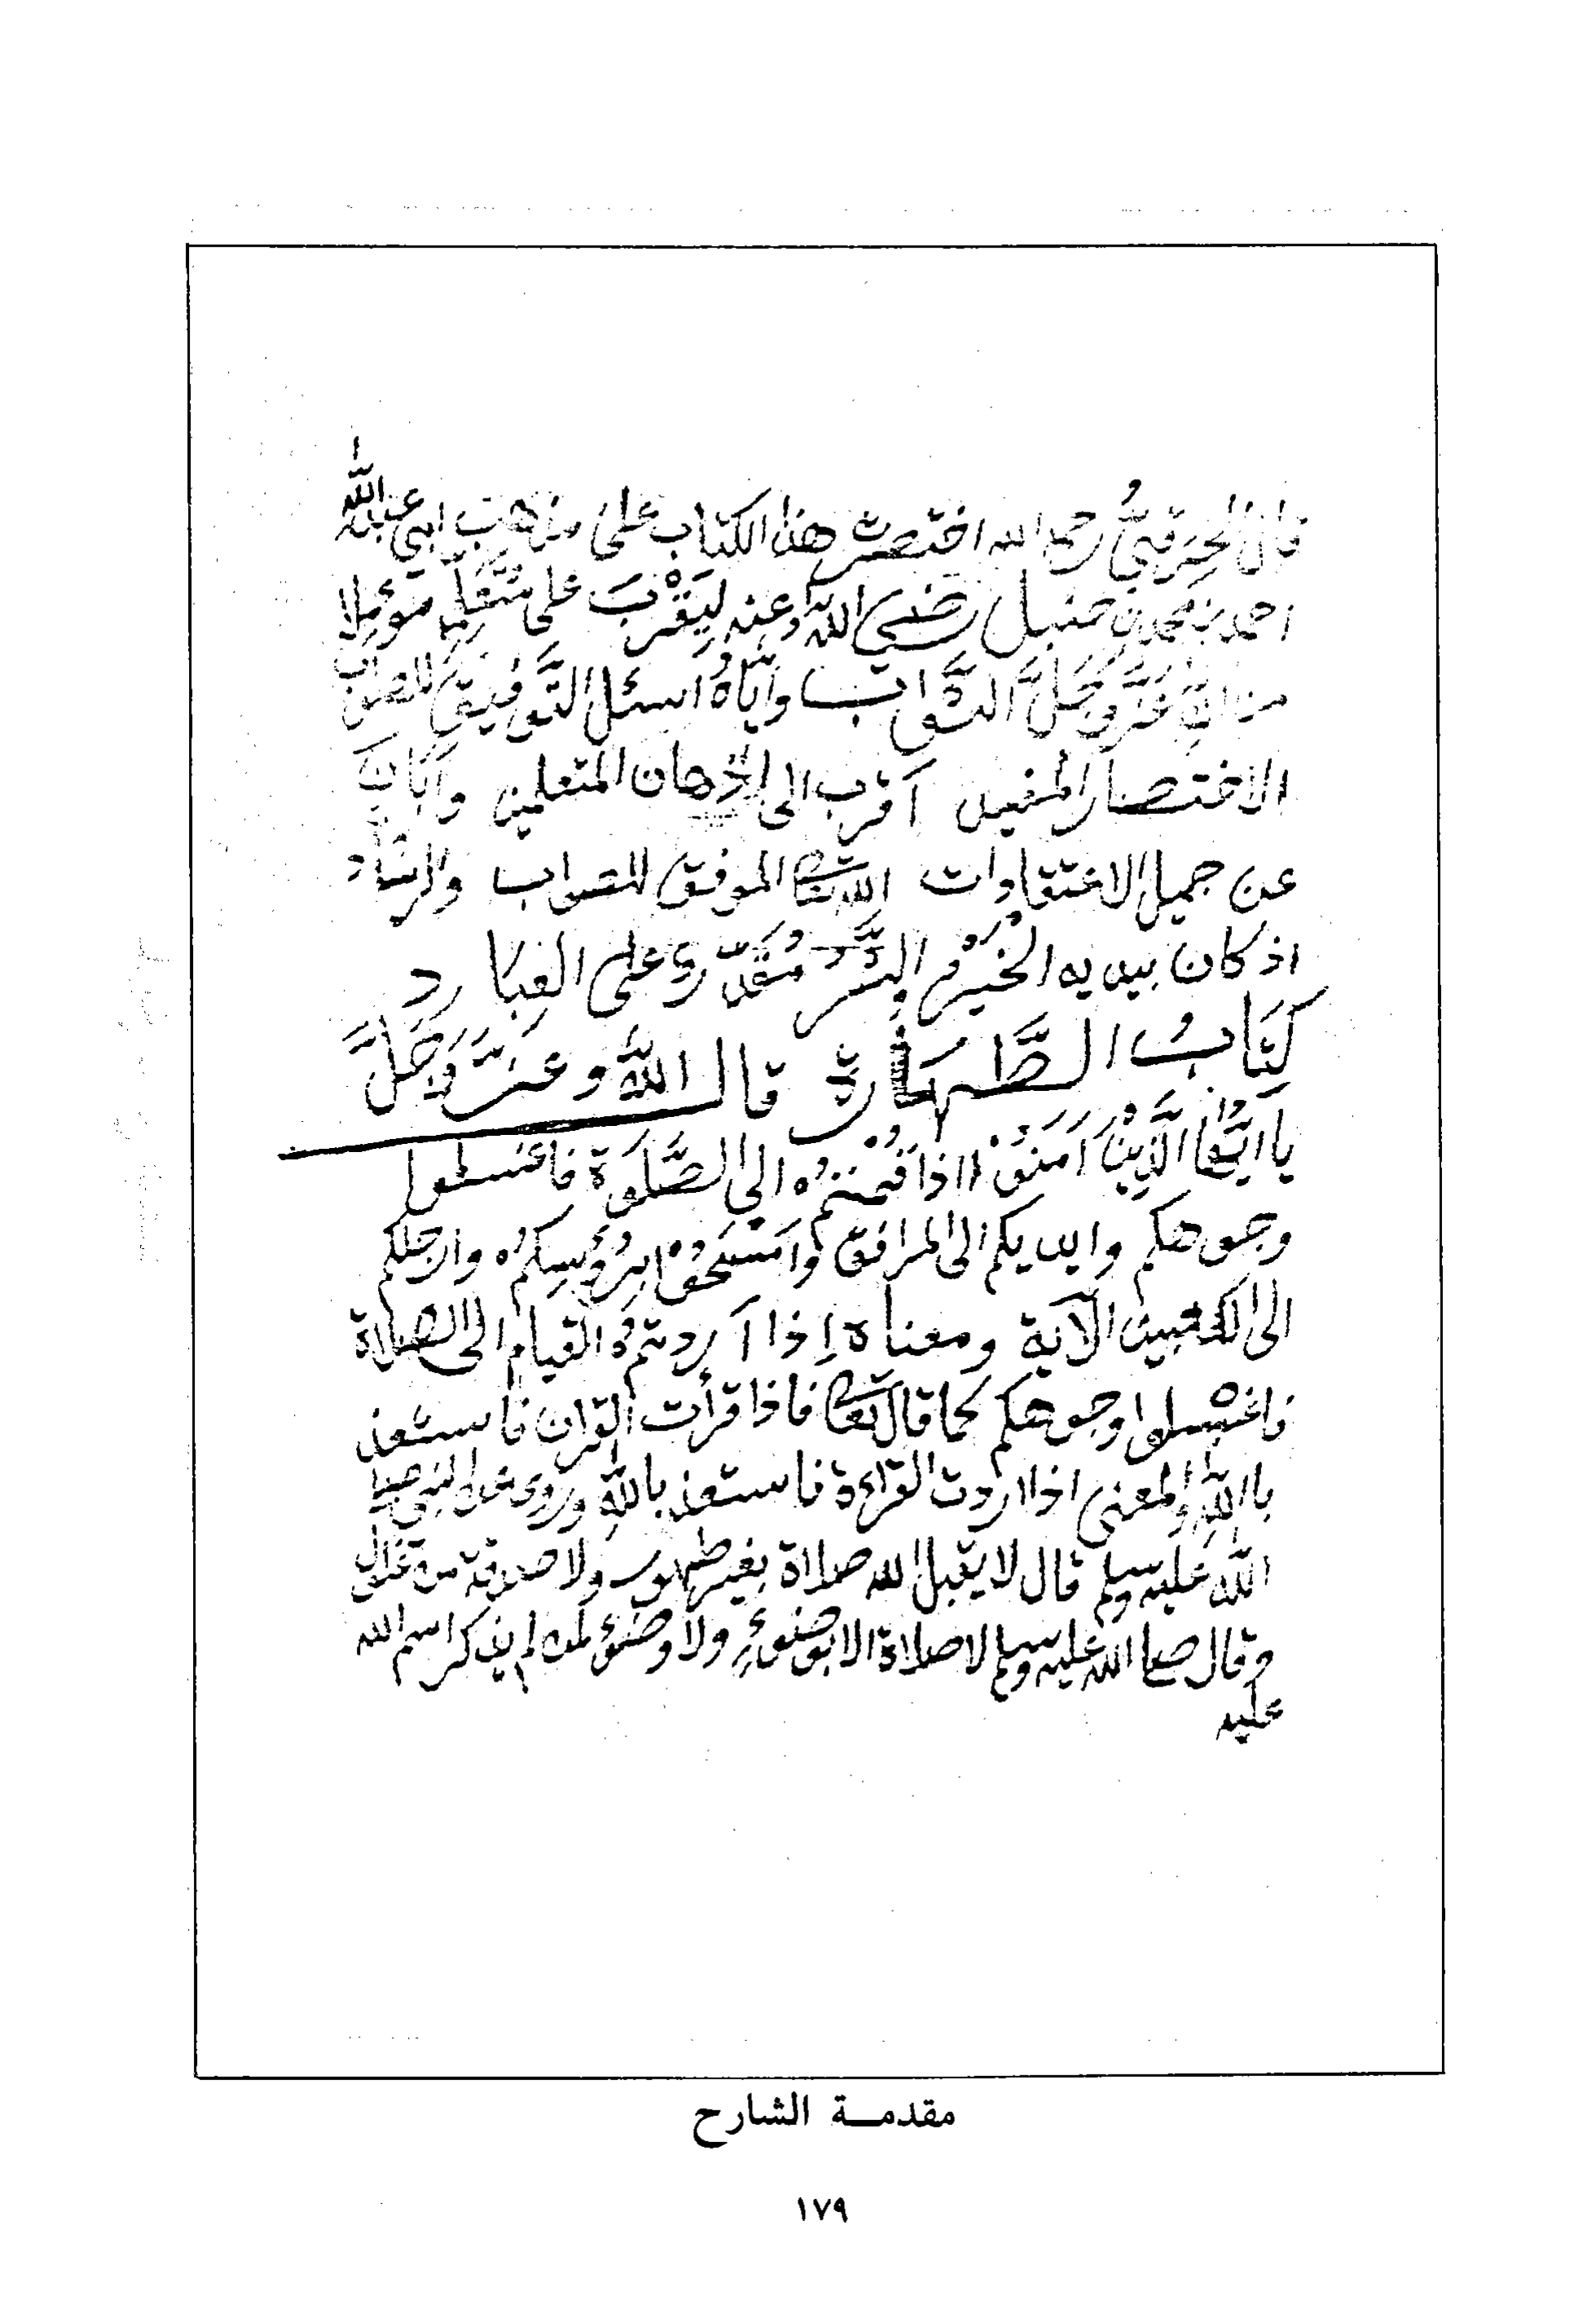 قال الخِرَقيُّ رحمه الله اختصرت هذا الكتاب على مذهب ابي عبد الله
احمد بن محمد بن حنبل رضي الله عنه لِيَقْرُبَ على مُتَعَلِّمه مؤمِلا
من الله عَزَّ وَجَلَّ الثَّواب وايّاهُ اسئل التَّوفِيقَ للصواب
الاختصار المفيد اَقرب الى الاذهان المتعلمين واَبَان
عن جميل الاعتقادات الله تعالى الموفق للصواب والرشاد
اذ كان بيديه الخَيْر والشَّر مُقَدّر على العِبَاد
كِتَابُ الطَّهَارة قال الله عَزَّ وَجَلَّ
يا ايُّهَا الَّذِيْنَ اَمَنُوْا اذا قُمْتُمْ الى الصَّلَوة فاغسلوا
وجوهكم وايديكم الى المرافق وامْسَحُوْا بِرُؤُسِكُمْ وارجلكم
الى الكعبين الآية ومعناه اِذا اَردتم القيام الى الصلاة
فاغْسِلوا وجوهكم كما قال تعالى فاذا قرأت القران فاستعذ
باللهِ والمعنى اذا اردت القراءة فاستعذ باللهِ وروى عن النبي صلى
الله عليه وسلم قال لا يقبل الله صلاة بغير طهور ولا صدقة من غلول
وقال صلى الله عليه وسلم لا صلاة الا بوضوءٍ ولا وضوء لمن لم يذكر اسم الله
عليه
مقدمة الشارح
١٧٩